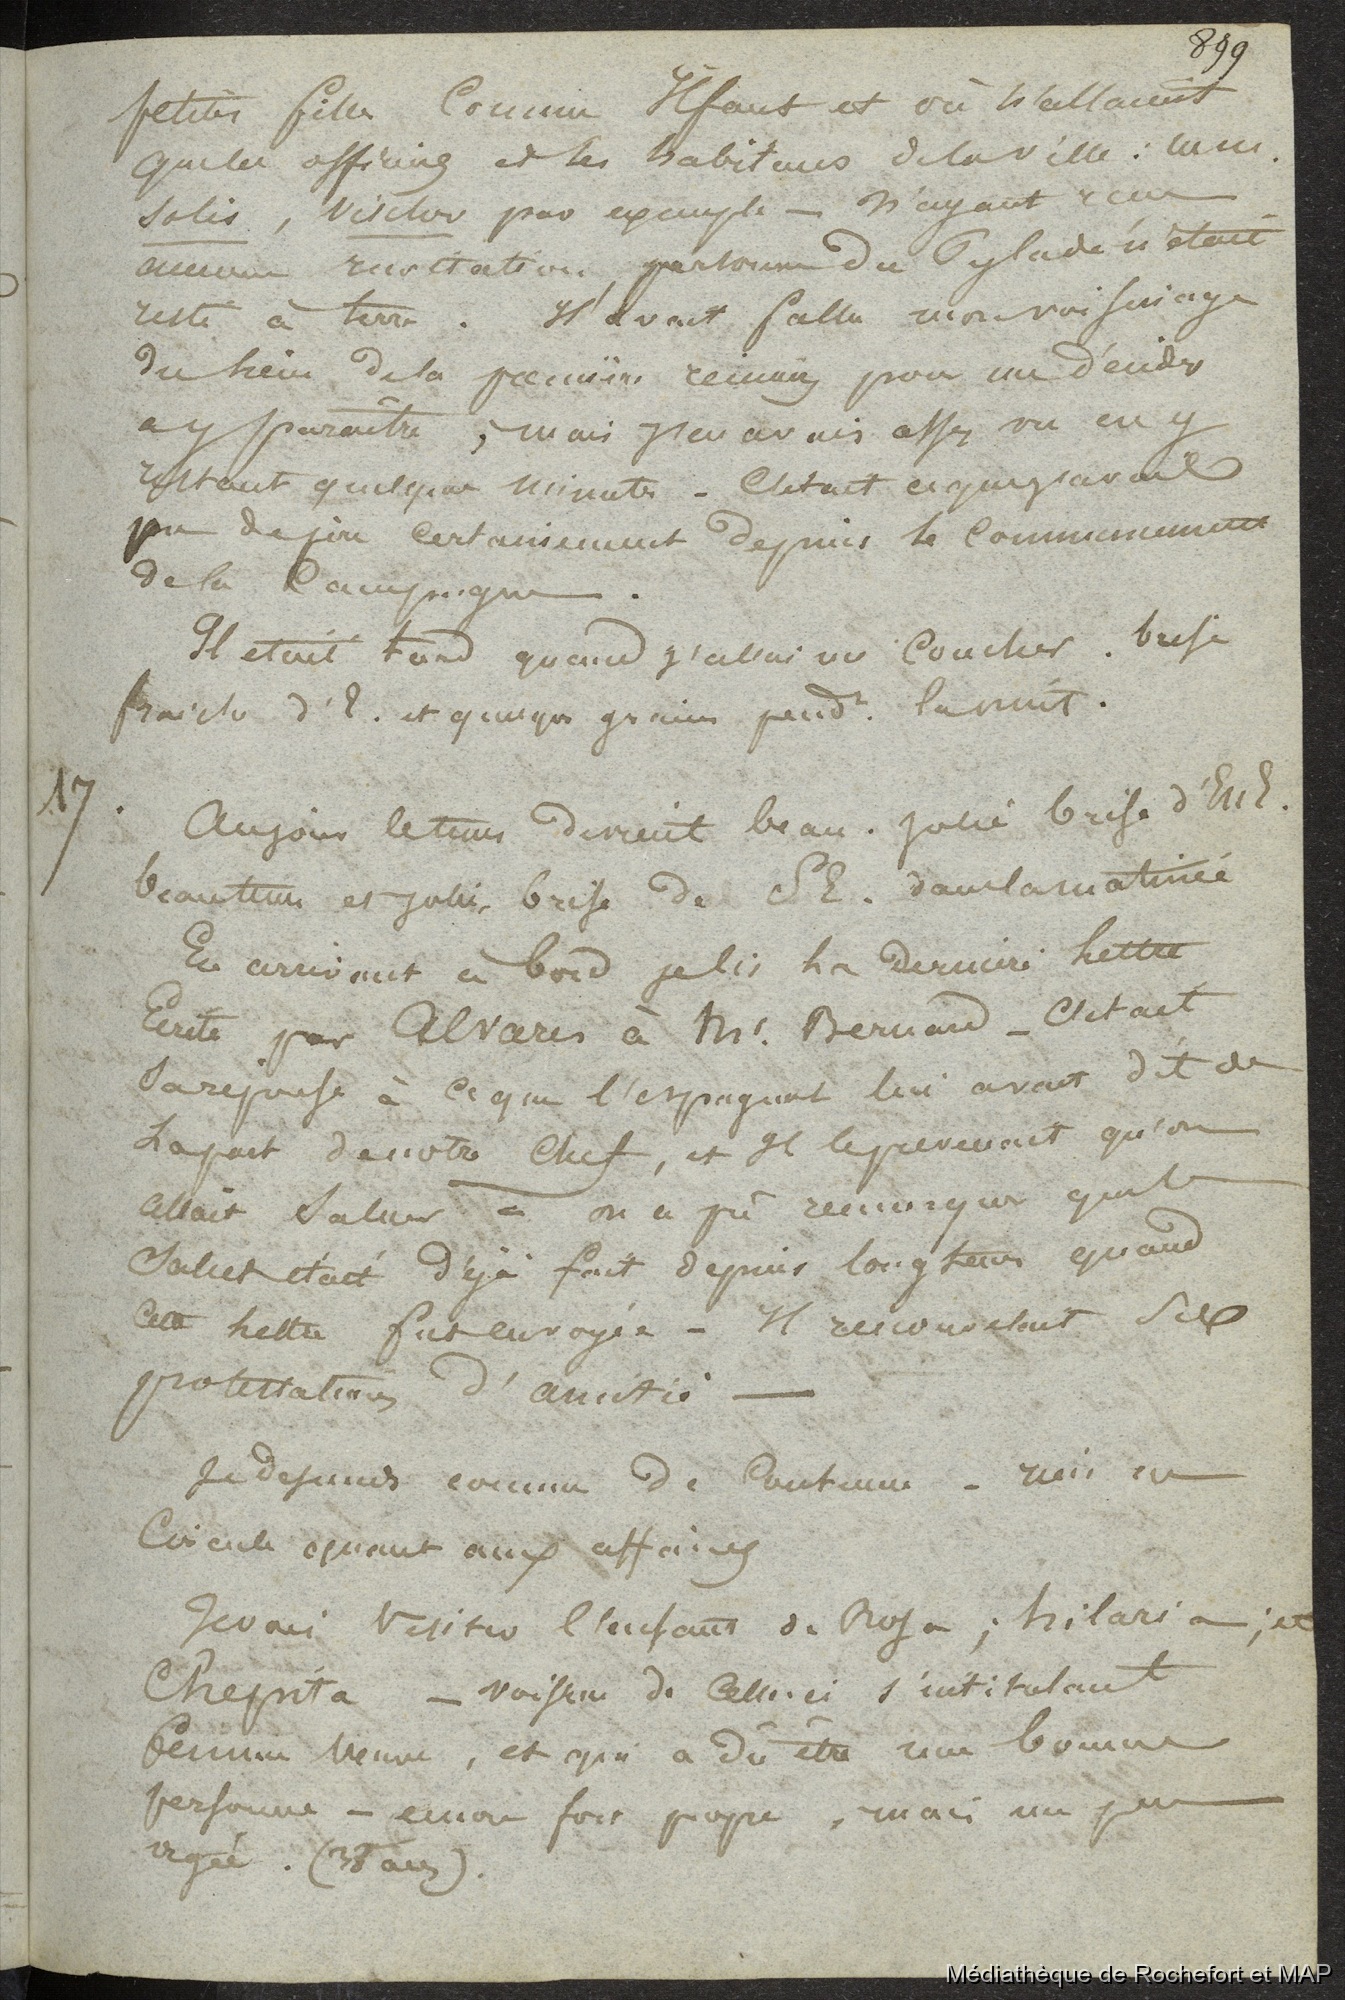 899
petites filles comme Il faut et où n'allaient
que les officiers et les habitans de la ville : mm.
Solis, Visclor par exemple — N'ayant reçu
aucune invitation, personne du Pylade n'était
resté à terre. Il avait fallu mon voisinage
du lieu de la première reunion pour me décider
a y paraître, mais j'en avais assez vu en y
restant quelques minutes — C'etait ce que j'avais
pu de pire certainement depuis le commencement
de la Campagne.
Il etait tard quand j'allai me coucher. brise
fraiche d'E. et quelques grains pendt. la nuit.
17.
Au jour le tems devient beau. jolie brise d'ENE.
beau tems et jolie brise de SE. dans la matinée
En arrivant à bord je lis la derniere lettre
Ecrite par Alvares à Mr. Bernard — C'etait
Sa reponse à ce que l'espagnol lui avait dit de
la part de notre Chef, et Il le prevenait qu'on
allait Saluer — on a pû remarquer que le
Salut était déjà fait depuis longtems quand
cette lettre fut envoyée — Il renouvelait Ses
protestations d'amitié —
Je dejeunes comme de Coutume — rien ne
Circule quant aux affaires
Je vais Visiter l'enfant de Rosa ; hilaria ; et
Chepita — voisine de celle ci s'intitulant
femme Veuve, et qui a dû être une bonne
personne — encore fort propre, mais un peu
agée. (38 ans).
Médiathèque de Rochefort et MAP